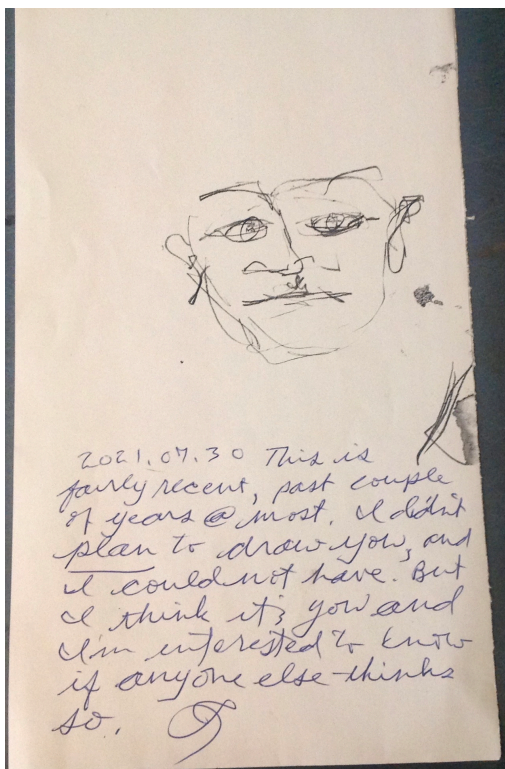 2021.07.30 This is
fairly recent, past couple
of years @ most. I didn't
plan to draw you, and
I could not have. But
I think it's you and
I'm interested to know
if anyone else thinks
so.